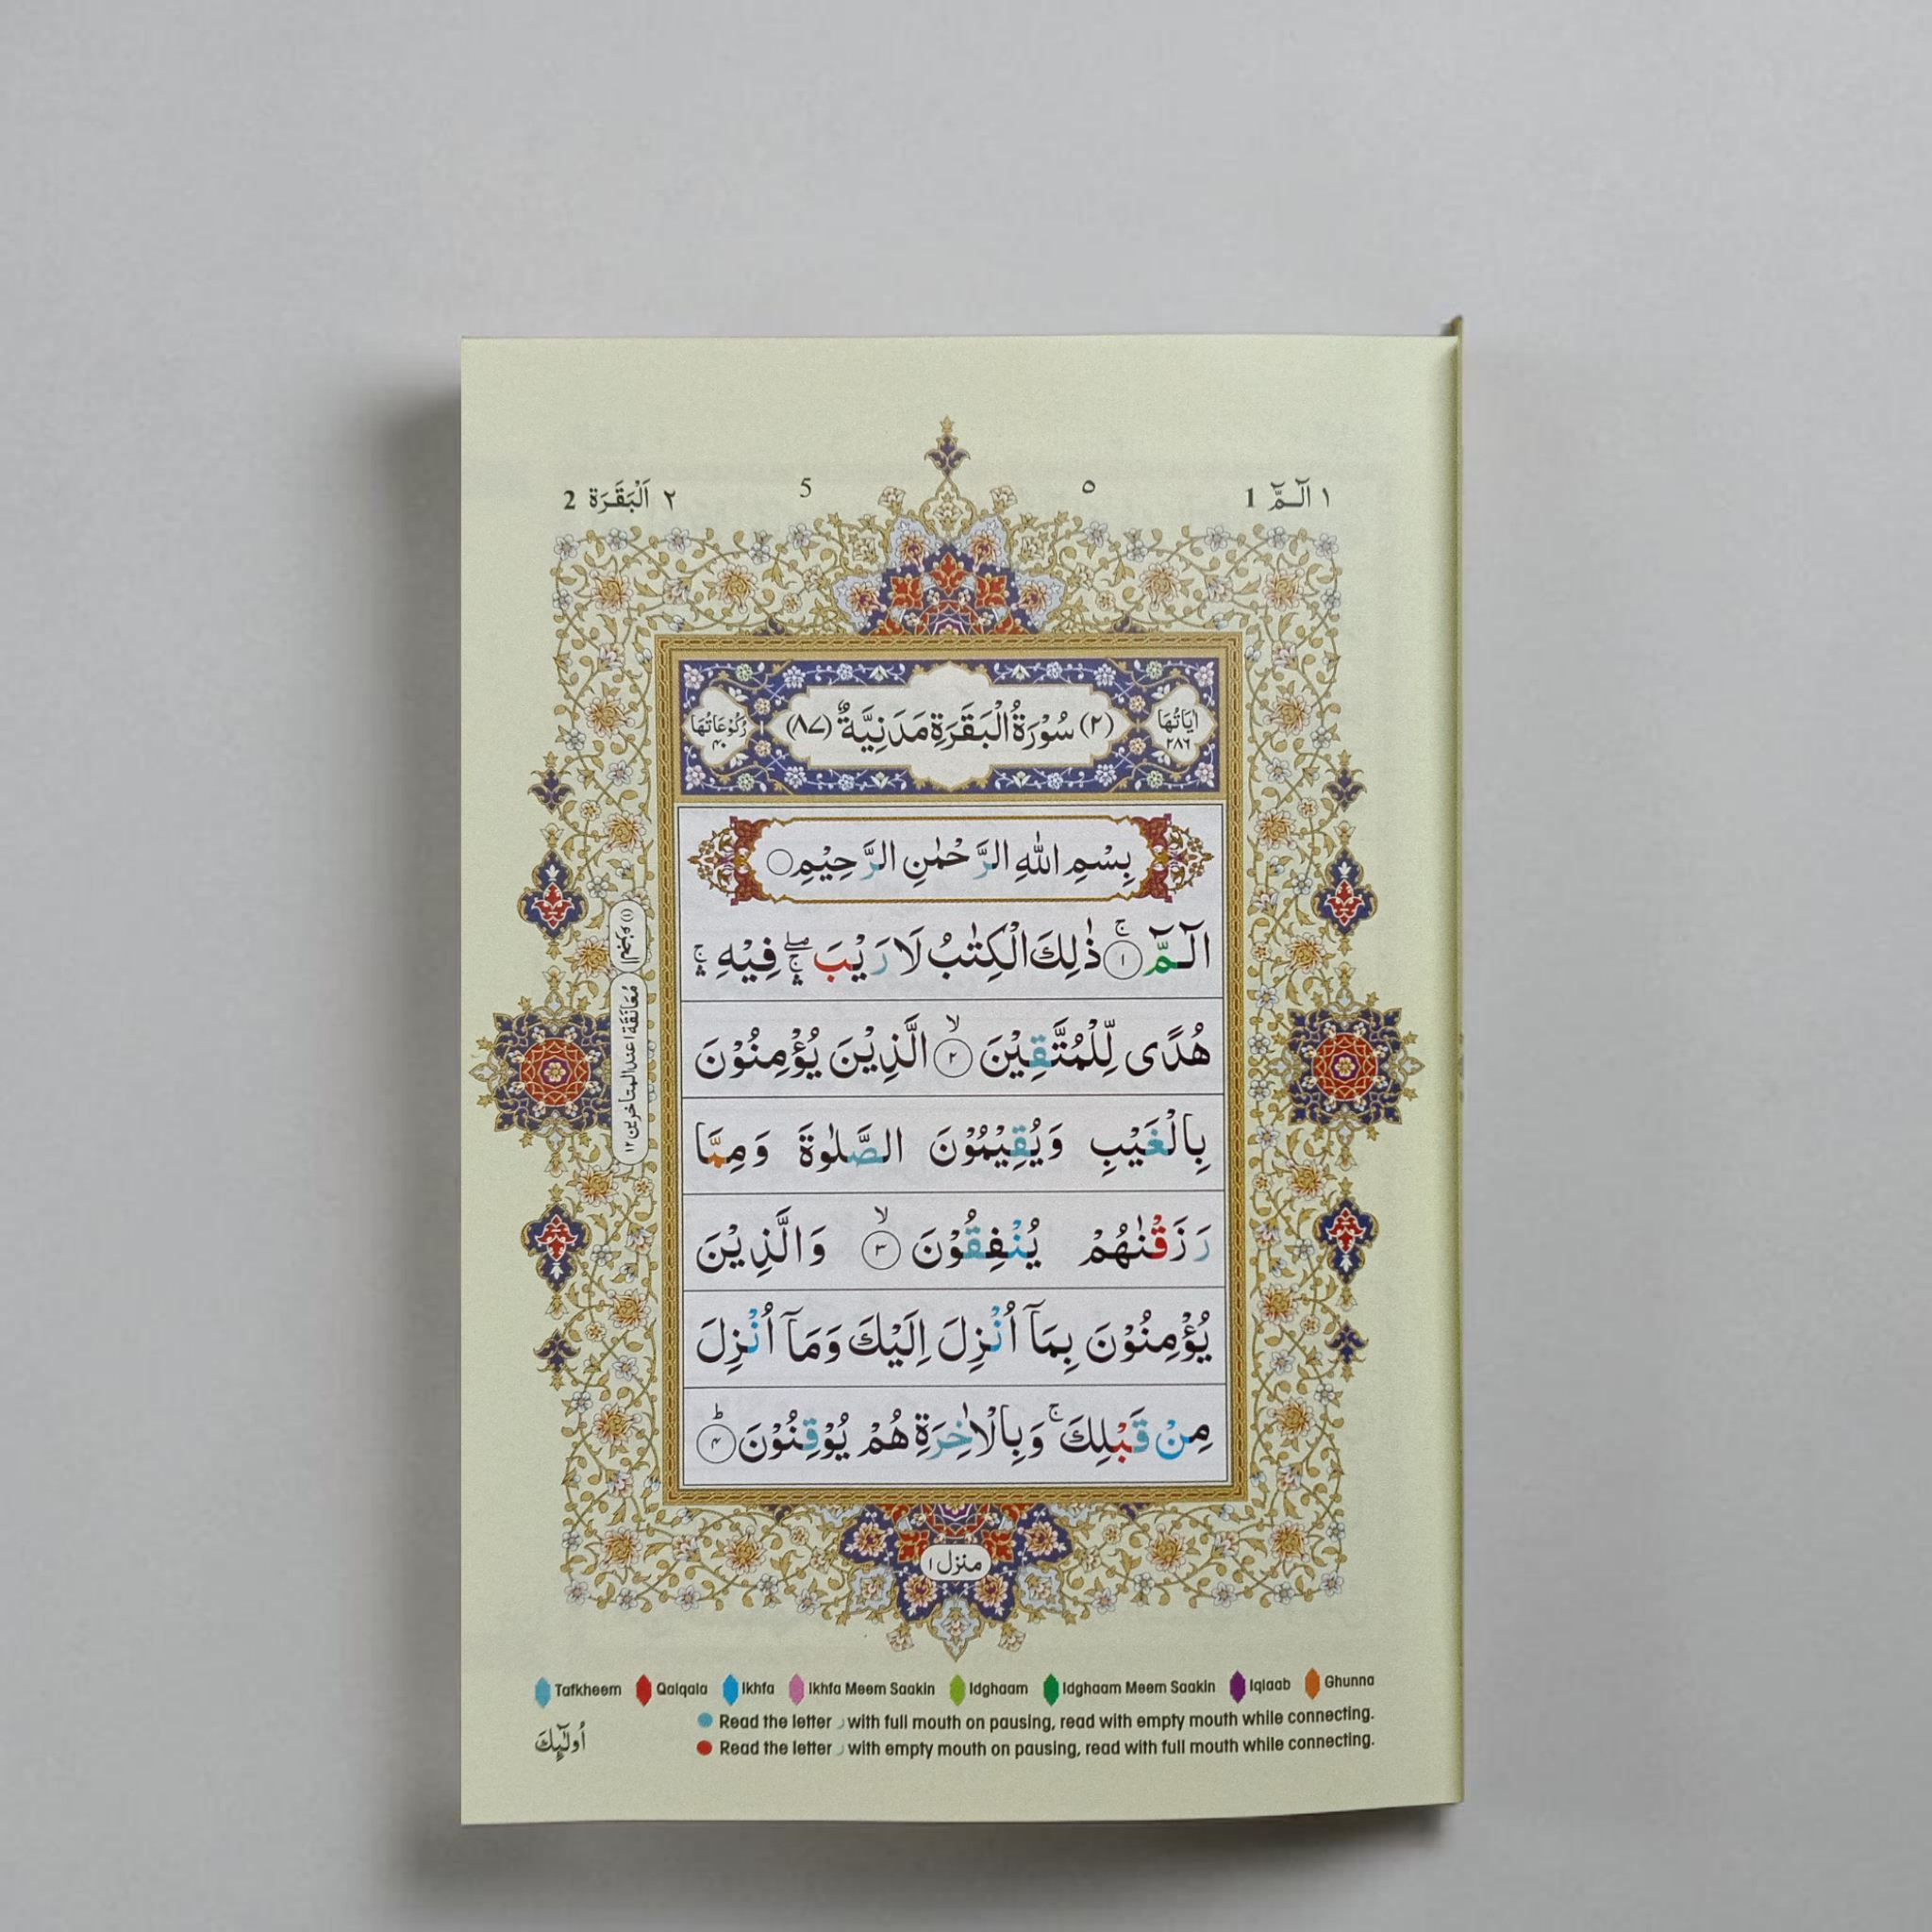 ١ الٓـمّٓ 1
٥
5
٢ اَلْبَقَرَة 2
اٰیَاتُهَا ٢٨٦
(٢) سُوْرَةُ الْبَقَرَةِ مَدَنِيَّةٌ (٨٧)
رُكُوْعَاتُهَا ٤٠
بِسْمِ اللّٰهِ الرَّحْمٰنِ الرَّحِيْمِ ○
الٓـمّٓ ۚ﴿١﴾ ذٰلِكَ الْكِتٰبُ لَا رَيْبَ ۖۛۚ فِيْهِ ۛۚ
هُدًى لِّلْمُتَّقِيْنَ ۙ﴿٢﴾ الَّذِيْنَ يُؤْمِنُوْنَ
بِالْغَيْبِ وَيُقِيْمُوْنَ الصَّلٰوةَ وَمِمَّا
رَزَقْنٰهُمْ يُنْفِقُوْنَ ۙ﴿٣﴾ وَالَّذِيْنَ
يُؤْمِنُوْنَ بِمَآ اُنْزِلَ اِلَيْكَ وَمَآ اُنْزِلَ
مِنْ قَبْلِكَ ۚ وَبِالْاٰخِرَةِ هُمْ يُوْقِنُوْنَ ؕ﴿٤﴾
مُعَانَقَة ١ عند المتاخرين ١٢
منزل ١
Tafkheem Qalqala Ikhfa Ikhfa Meem Saakin Idghaam Idghaam Meem Saakin Iqlaab Ghunna
Read the letter ر with full mouth on pausing, read with empty mouth while connecting.
Read the letter ر with empty mouth on pausing, read with full mouth while connecting.
اُولٰٓئِكَ